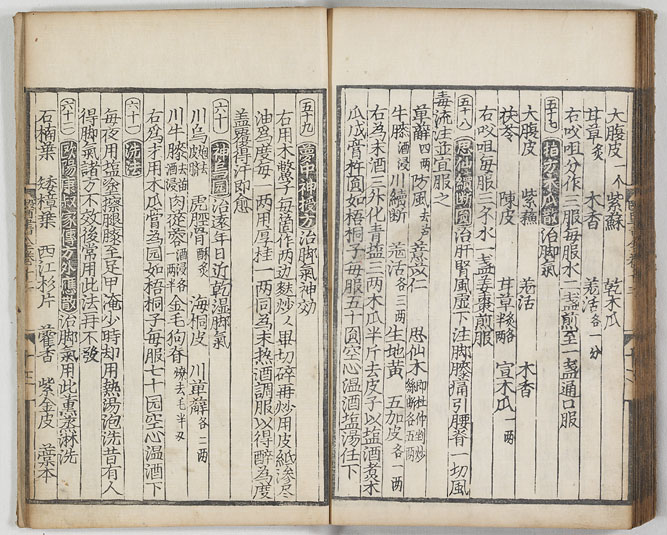 大腹皮一个 紫蘇 乾木瓜
甘草炙 木香 羌活各一分
右㕮咀分作三服每服水二盞煎至一盞通口服
五十七 指方木瓜散治脚氣
大腹皮 紫蘇 羌活 木香
茯苓 陳皮 甘草炙半兩 宣木瓜一兩
右㕮咀每服三公水一盞姜棗煎服
五十八 思仙續断圎治肝腎風虚下注脚膝痛引腰脊一切風
毒流注並宜服之
萆薢四兩 防風去芦 薏苡仁 思仙木即杜仲剉炒
牛膝酒浸 川續断 羌活各三两 生地黄 五加皮各一两
右為末酒三外化青盐三两木瓜半斤去皮子以盐酒煮木
瓜成膏杵圎如梧桐子每服五十圎空心温酒盐湯任下
五十九 夢中神授方治脚氣神効
右用木鱉子每箇作两边麩炒乆畢切碎再炒用皮紙滲尽
油爲度每一两用厚桂一两同為末热酒調服以得醉為度
盖覆得汗即愈
六十 神烏圎治遠年日近乾湿脚氣
川烏炮去皮臍 虎脛骨酥炙 海桐皮 川萆薢各二两
川牛膝酒浸 肉苁蓉酒浸各一两半 金毛狗脊燎去毛半
右為末用木瓜膏為园如梧桐子每服七十园空心温酒下
六十一 洗法
每夜用盐塗擦腿膝至足甲淹少時却用熱湯泡洗昔有人
得脚氣諸方不效後常用此法再不發
六十二 欧陽康叔家傳方治脚氣用此熏蒸淋洗
石楠葉 矮樟葉 西江杉片 藿香 紫金皮 藁本